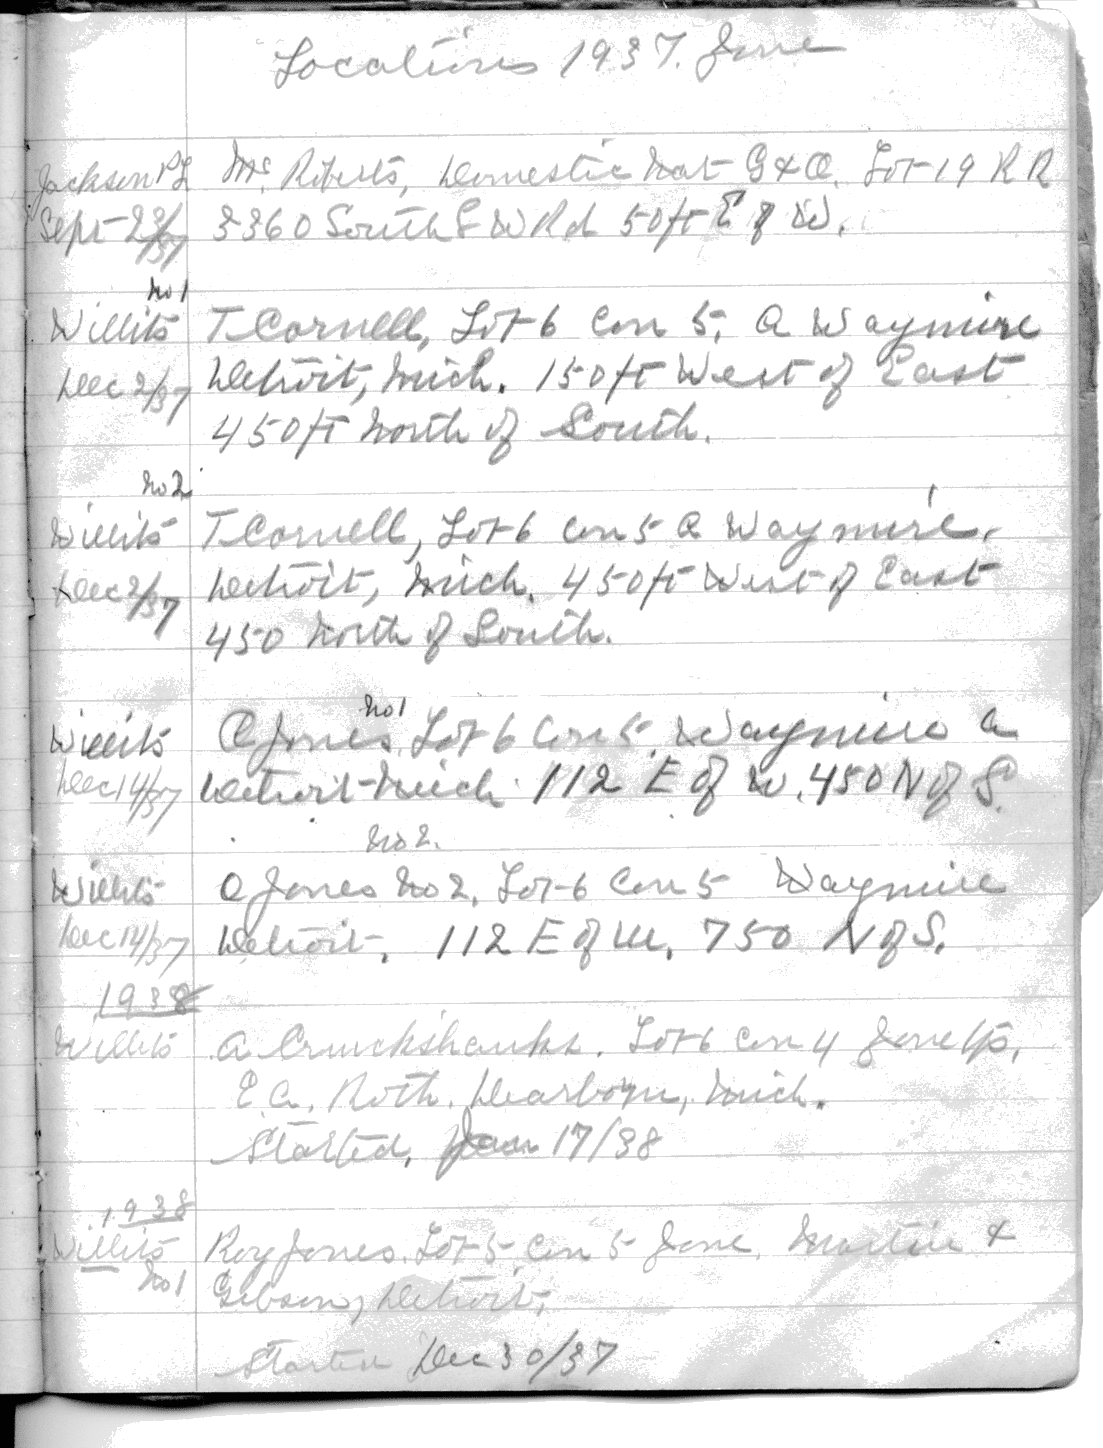 Locations 1937. Zone
Jackson Mr. Roberts, Domestic Nat G & O. Lot 19 R R
Sept 23/37 3360 South L W Rd 50ft E of W.
No 1
Willits T. Cornell, Lot 6 Con 5, A Waymire
Dec 2/37 Detroit, Mich. 150ft West of East
450ft North of South.
No 2
Willits T. Cornell, Lot 6 Con 5 A Waymire,
Dec 2/37 Detroit, Mich. 450ft West of East
450 North of South.
No 1
Willits Jones, Lot 6 Con 5, Waymire A
Dec 14/37 Detroit Mich 112 E of W. 450 N of S.
No 2.
Willits Jones No 2, Lot 6 Con 5 Waymire
Dec 14/37 Detroit. 112 E of W. 750 N of S.
1938
Willits A. Cruickshanks. Lot 6 Con 4 Zone Tp.
E. A. Roth. Dearborn, Mich.
Started, Jan 17/38
1938
Willits Roy Jones. Lot 5, Con 5 Zone. Martin &
No 1 Gibson, Detroit.
Started Dec 30/37